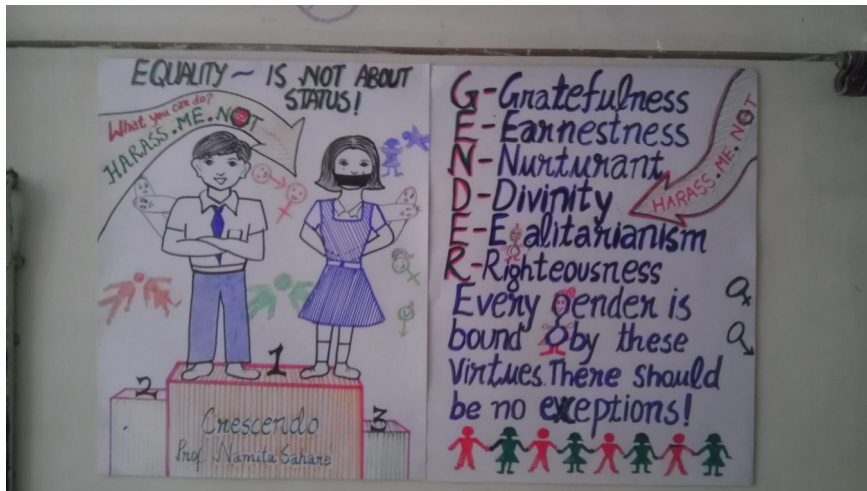 EQUALITY ~ IS NOT ABOUT
STATUS!
What you can do?
HARASS.ME.NOT
1
2
3
Crescendo
Prof. Namita Sahare
G-Gratefulness
E-Earnestness
N-Nurturant
D-Divinity
E-Egalitarianism
R-Righteousness
HARASS.ME.NOT
Every gender is
bound by these
virtues. There should
be no exceptions!